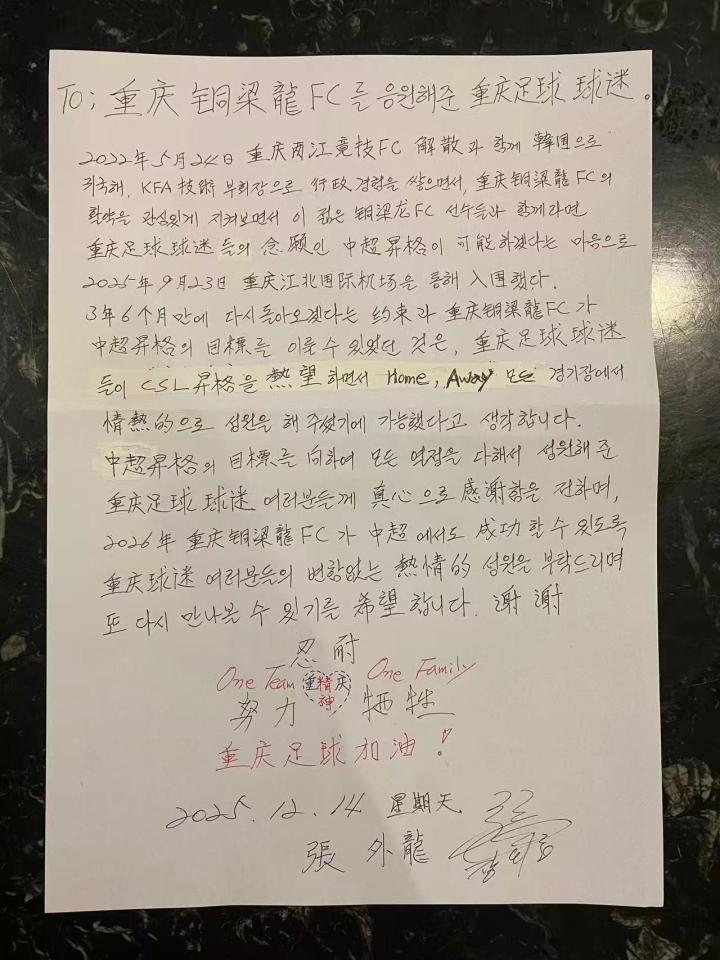 To; 重庆 铜梁龍FC를 응원해준 重庆足球 球迷。
2022年 5月 24日 重庆两江竞技FC 解散과 함께 韓国으로
귀국해, KFA 技術 부회장으로 行政 경험을 쌓으면서, 重庆铜梁龍FC의
활약을 관심있게 지켜보면서 이 젊은 铜梁龙FC 선수들과 함께라면
重庆足球球迷들의 念願인 中超昇格이 可能하겠다는 마음으로
2025年 9月23日 重庆江北国际机场을 통해 入国했다.
3年 6个月만에 다시 돌아오겠다는 约束과 重庆铜梁龍FC가
中超昇格의 目標를 이룰 수 있었던 것은, 重庆足球球迷
들이 CSL昇格을 熱望하면서 Home, Away 모든 경기장에서
情熱的으로 성원을 해 주셨기에 가능했다고 생각합니다.
中超昇格의 目標를 向하여 모든 역정을 다해서 성원해 준
重庆足球 球迷 여러분들께 真心으로 感谢함을 전하며,
2026年 重庆铜梁龍FC가 中超에서도 成功할 수 있도록
重庆球迷 여러분들의 변함없는 熱情的 성원을 부탁드리며
또 다시 만나볼 수 있기를 希望합니다. 谢谢
忍耐
One Team 重精庆神 One Family
努力 牺牲
重庆足球加油!
2025. 12. 14 星期天
張 外龍